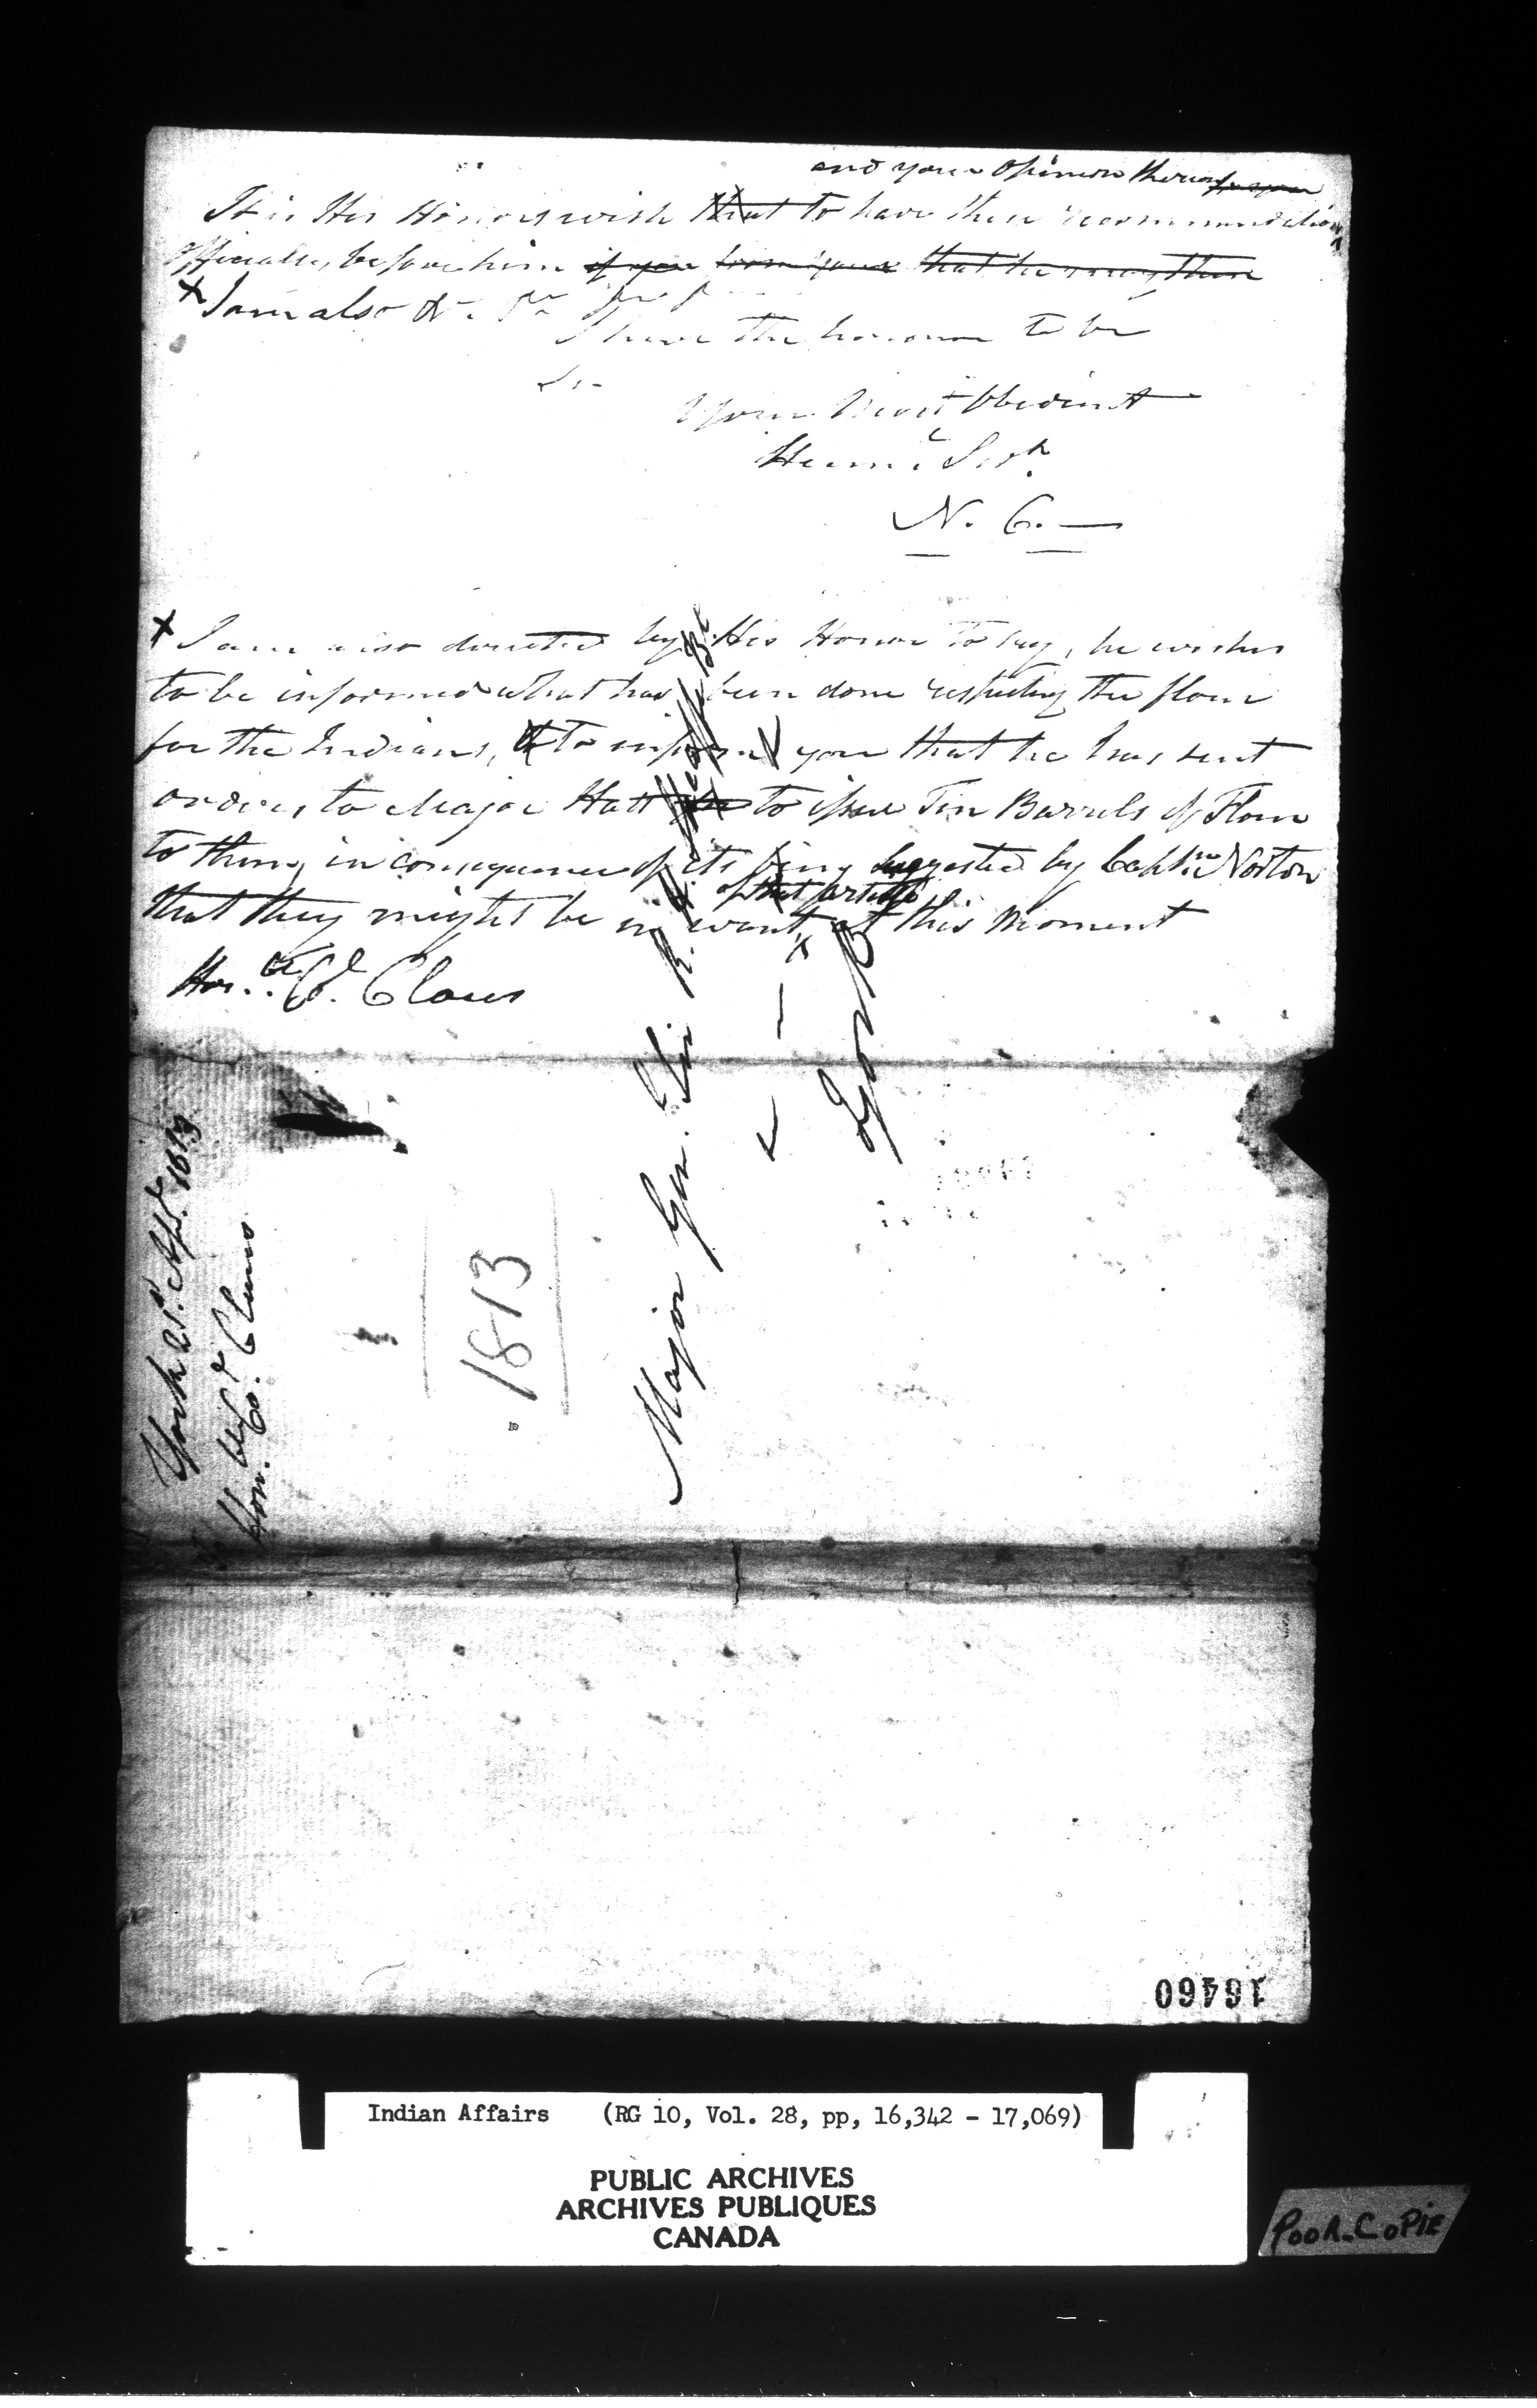 and your Opinion thereon
It is His Honors wish that to have these recommendation
officially before him if you that he may then
x I am also &c.
I have the honour to be
Sir
Your Most Obedient
Hum.e Serv.t
N. C. —
x I am also directed by His Honor to say, he wishes
to be informed what has been done respecting the flour
for the Indians, to inform you that he has sent
orders to Major Hatt to issue Ten Barrels of Flour
to them, in consequence of its being suggested by Captn. Norton
of that article
that they might be in want, at this moment
x
Hon.ble Cl. Claus
Major Gen. Sir R. H.
York
York 21st Apl. 1813
To
Hon. Col. Claus
1813
16460
Indian Affairs (RG 10, Vol. 28, pp, 16,342 - 17,069)
PUBLIC ARCHIVES
ARCHIVES PUBLIQUES
CANADA
POOR_COPIE